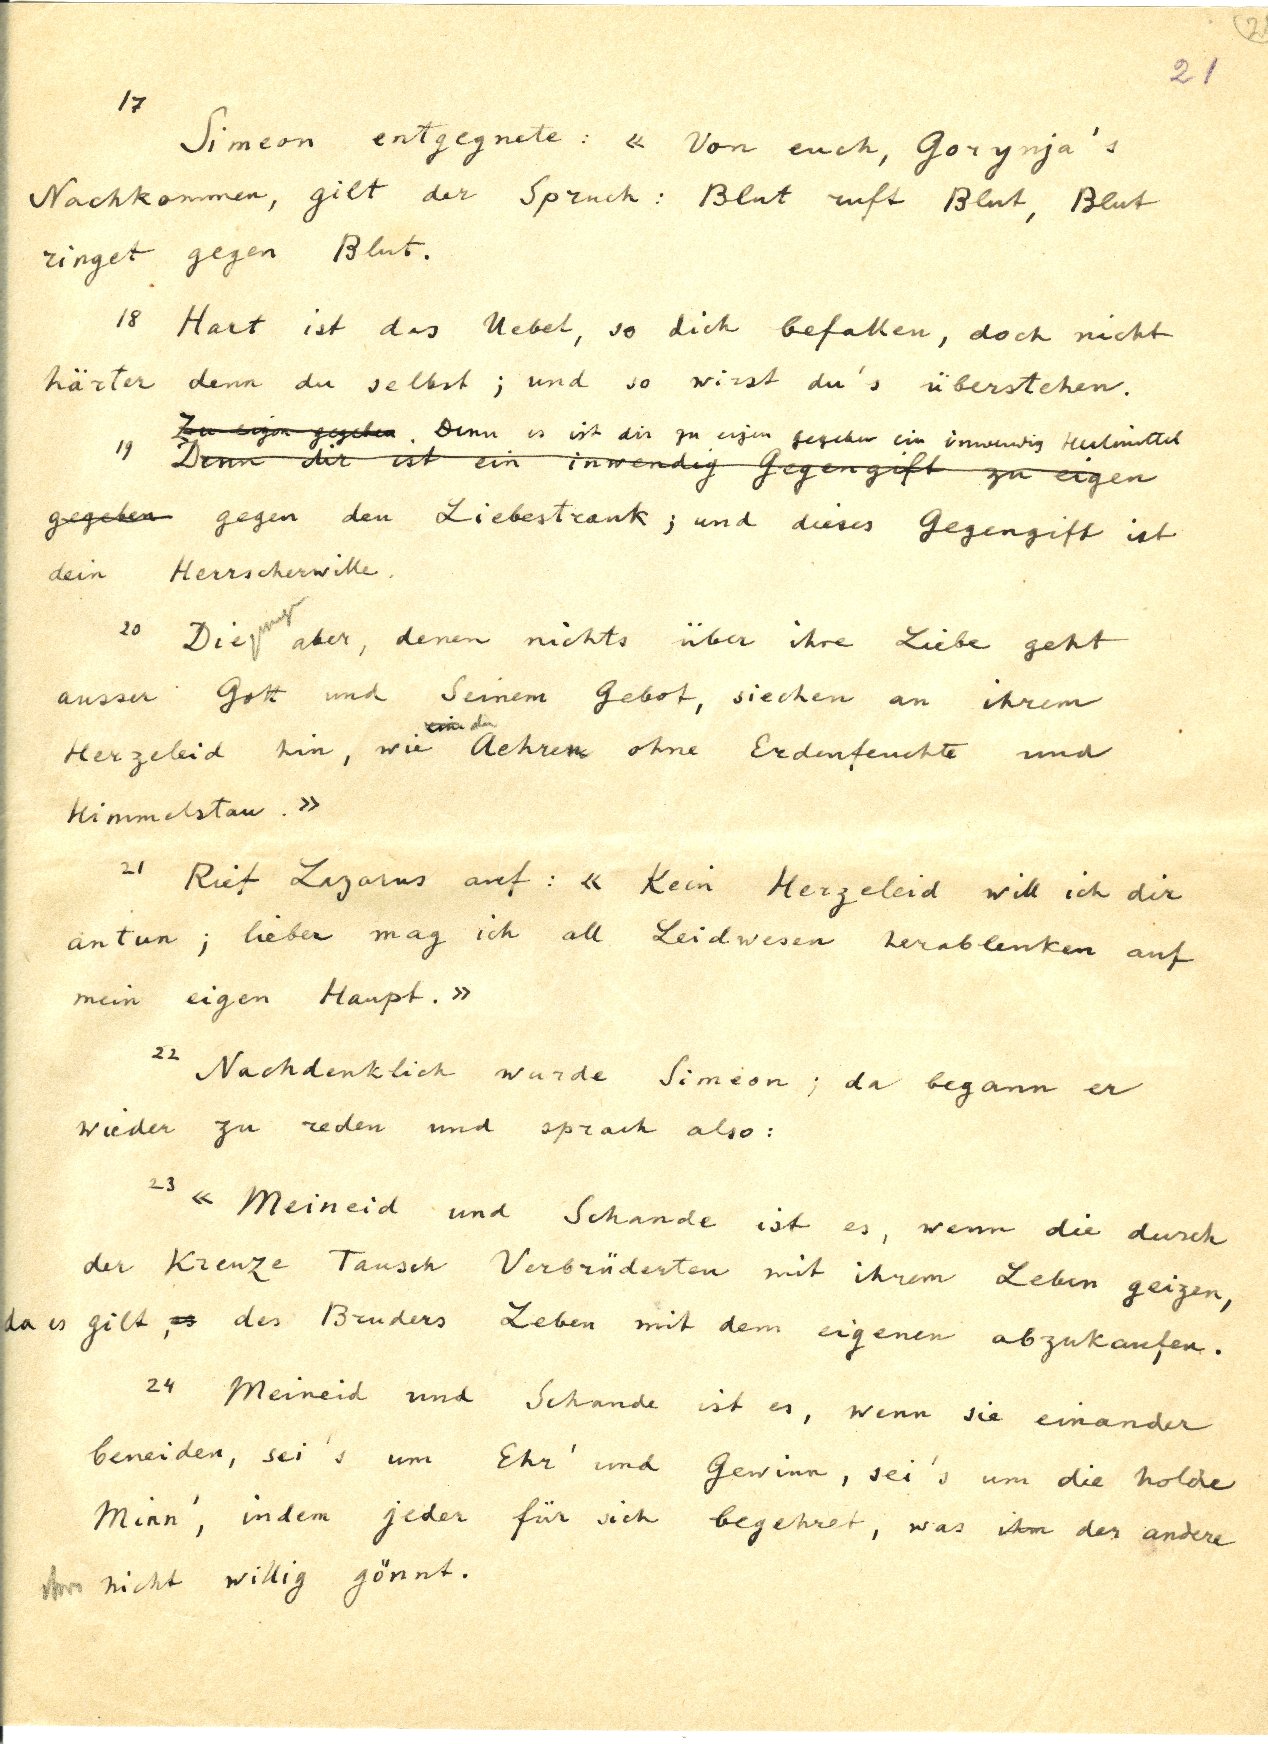 21
17
Simeon entgegnete: « Von euch, Gorynja's
Nachkommen, gilt der Spruch: Blut ruft Blut, Blut
ringet gegen Blut.
18 Hart ist das Uebel, so dich befallen, doch nicht
härter denn du selbst; und so wirst du's überstehen.
Zu eigen gegeben. Denn es ist dir zu eigen gegeben ein inwendig Heilmittel
19 Denn dir ist ein inwendig Gegengift zu eigen
gegeben gegen den Liebestrank; und dieses Gegengift ist
dein Herrscherwille.
20 Die aber, denen nichts über ihre Liebe geht
ausser Gott und Seinem Gebot, siechen an ihrem
ein der
Herzeleid hin, wie Aehren ohne Erdenfeuchte und
Himmelstau.»
21 Rief Lazarus auf: « Kein Herzeleid will ich dir
antun; lieber mag ich all Leidwesen herablenken auf
mein eigen Haupt.»
22 Nachdenklich wurde Simeon; da begann er
wieder zu reden und sprach also:
23 « Meineid und Schande ist es, wenn die durch
der Kreuze Tausch Verbrüderten mit ihrem Leben geizen,
da es gilt, es des Bruders Leben mit dem eigenen abzukaufen.
24 Meineid und Schande ist es, wenn sie einander
beneiden, sei's um Ehr' und Gewinn, sei's um die holde
Minn', indem jeder für sich begehret, was ihm der andere
ihm nicht willig gönnt.